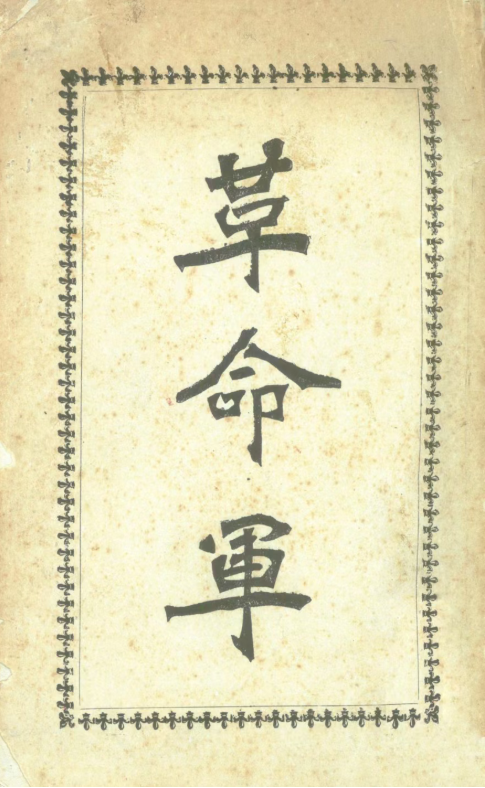 革
命
軍